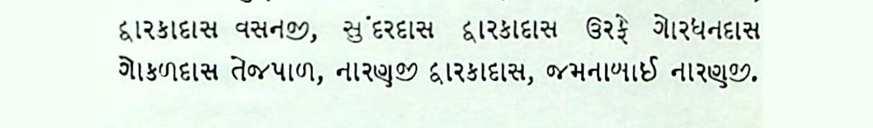 દ્વારકાદાસ વસનજી, સુંદરદાસ દ્વારકાદાસ ઉરફે ગોરધનદાસ
ગોકળદાસ તેજપાળ, નારણજી દ્વારકાદાસ, જમનાબાઈ નારણજી.